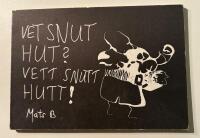 VET SNUT
HUT?
VETT SNUTT
HUTT!
Mats B